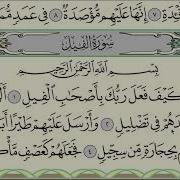 إِنَّهَا عَلَيْهِم مُّؤْصَدَةٌ ٨ فِى عَمَدٍ
سُورَةُ الفِيلِ
بِسْمِ ٱللَّهِ ٱلرَّحْمَٰنِ ٱلرَّحِيمِ
كَيْفَ فَعَلَ رَبُّكَ بِأَصْحَٰبِ ٱلْفِيلِ ١
فِى تَضْلِيلٍ ٢ وَأَرْسَلَ عَلَيْهِمْ طَيْرًا
بِحِجَارَةٍ مِّن سِجِّيلٍ ٤ فَجَعَلَهُمْ كَعَصْفٍ